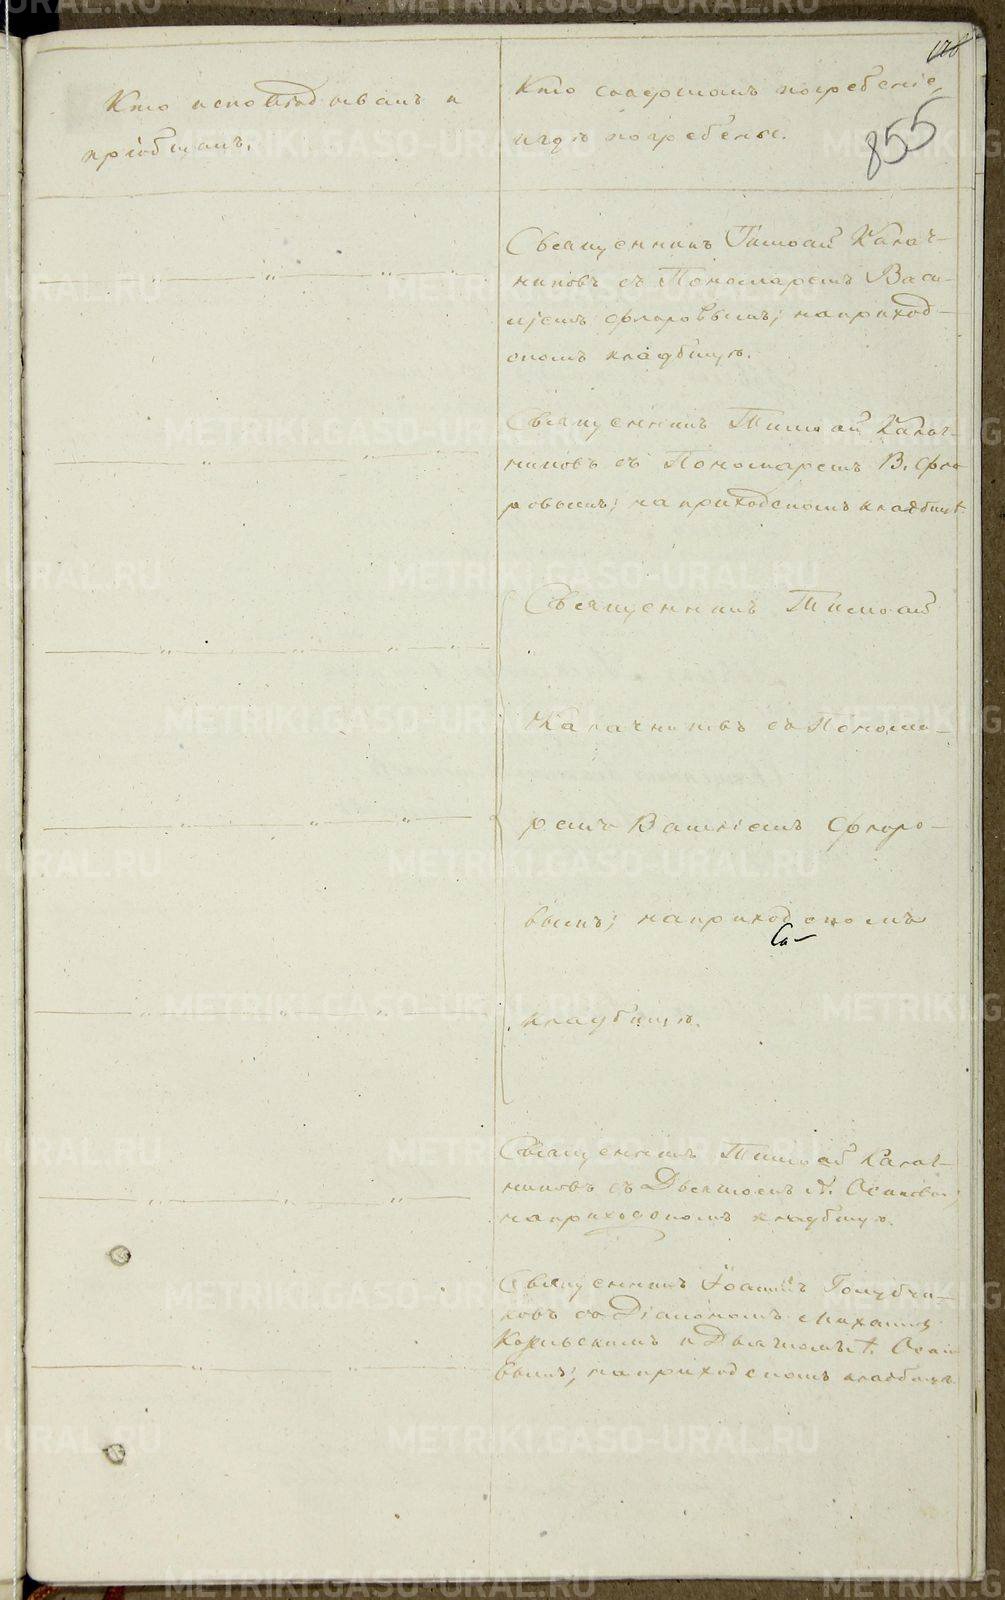 128
855
Кто исповѣдывалъ и
пріобщалъ.
Кто совершалъ погребеніе,
и гдѣ погребены.
Священникъ Тимоѳей Калач-
никовъ съ Пономаремъ Васи-
ліемъ Флоровымъ; на приход-
скомъ кладбищѣ.
Священникъ Тимоѳей Калач-
никовъ съ Пономаремъ В. Фло
ровымъ; на приходскомъ кладбищѣ
Священникъ Тимоѳей
Калачниковъ съ Понома-
ремъ Василіемъ Флоро-
вымъ; на приходскомъ
кладбищѣ.
Священникъ Тимоѳей Калач-
никовъ съ Дьячкомъ
на приходскомъ кладбищѣ.
Священникъ Іоаннъ Голубчи-
ковъ со Діакономъ Михаиломъ
и Дьячкомъ
вымъ; на приходскомъ кладбищѣ
METRIKI.GASO-URAL.RU